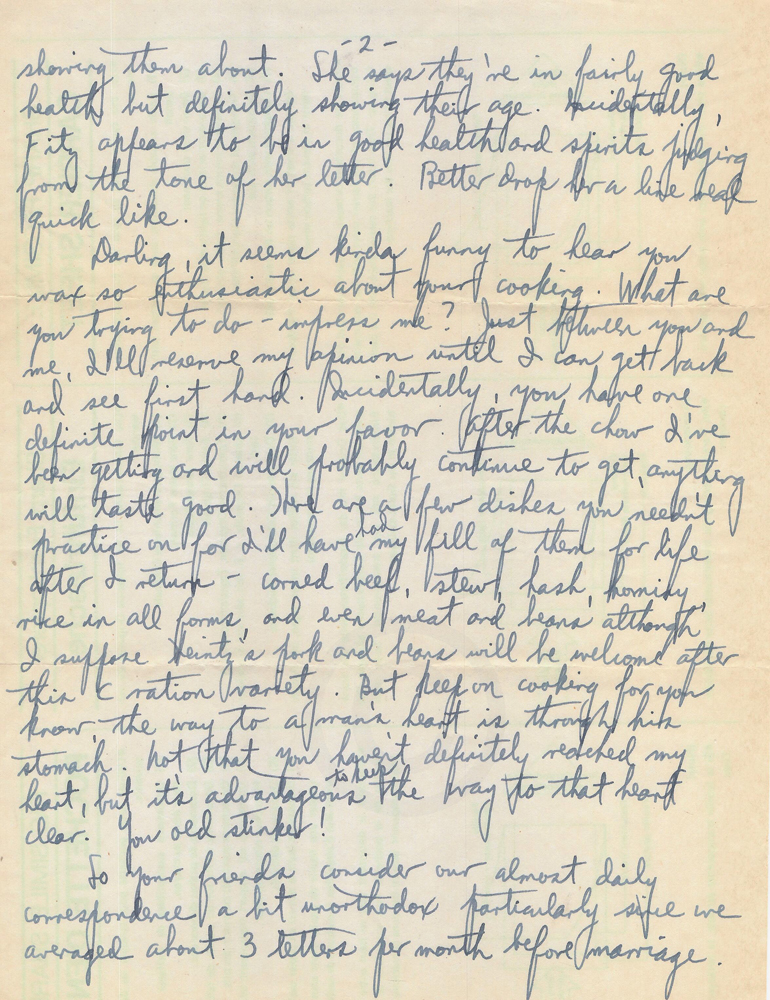 - 2 -
showing them about. She says they're in fairly good
health but definitely showing their age. Incidentally,
Fitz appears to be in good health and spirits judging
from the tone of her letter. Better drop her a line real
quick like.
Darling, it seems kinda funny to hear you
wax so enthusiastic about your cooking. What are
you trying to do - impress me? Just between you and
me, I'll reserve my opinion until I can get back
and see first hand. Incidentally, you have one
definite point in your favor. After the chow I've
been getting and will probably continue to get, anything
will taste good. Here are a few dishes you needn't
practice on for I'll have had my fill of them for life
after I return - corned beef, stew, hash, hominy,
rice in all forms, and even meat and beans although
I suppose Heintz's pork and beans will be welcome after
this C ration variety. But keep on cooking for you
know, the way to a man's heart is through his
stomach. Not that you haven't definitely reached my
heart, but it's advantageous to keep the way to that heart
clear. You old stinker!
So your friends consider our almost daily
correspondence a bit unorthodox particularly since we
averaged about 3 letters per month before marriage.